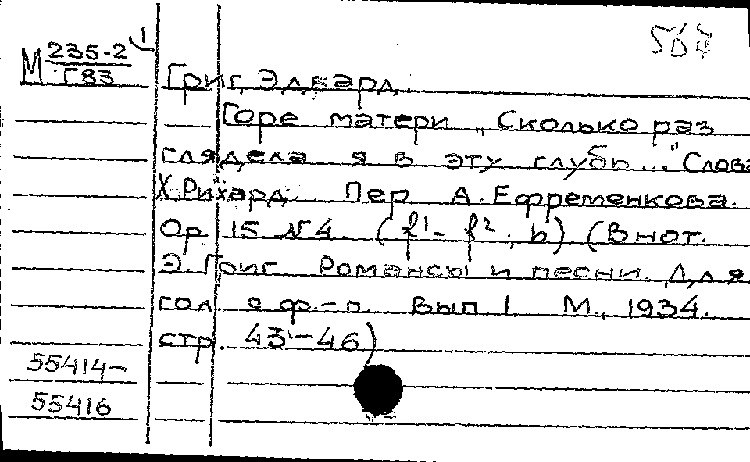 М 235-2
Г83
1
567
Григ, Эдвард.
Горе матери „Сколько раз
глядела я в эту глубь..." Слова
Х. Рихард. Пер А. Ефременкова.
Ор 15 №4 (f¹- f², b) (В нот.
Э. Григ Романсы и песни. Для
гол с ф-п. Вып 1 М., 1934.
стр. 43-46)
55414-
55416